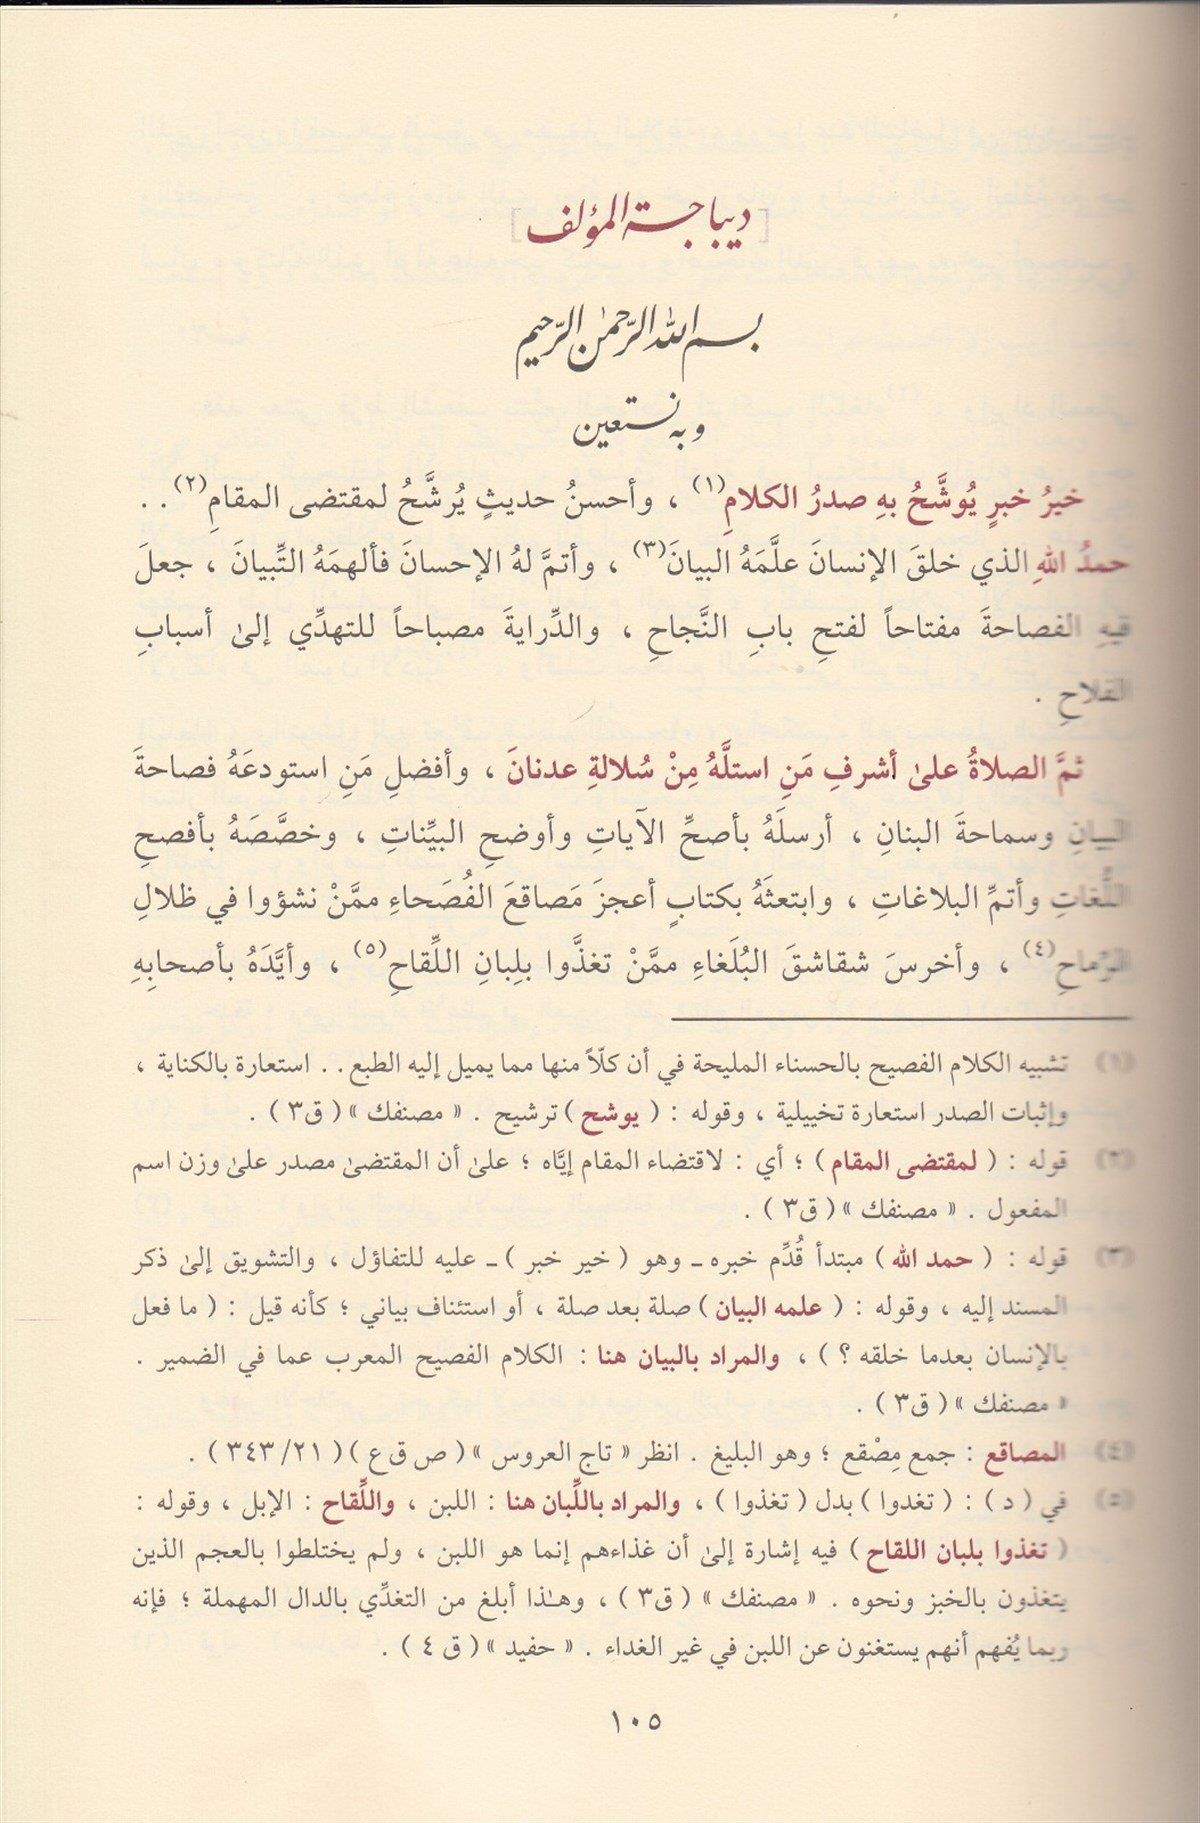 [ ديباجة المؤلف ]
بسم الله الرحمٰن الرحيم
وبه نستعين
خيرُ خبرٍ يُوشَّحُ بهِ صدرُ الكلامِ(١) ، وأحسنُ حديثٍ يُرشَّحُ لمقتضى المقامِ(٢) . .
حمدُ اللهِ الذي خلقَ الإنسانَ علَّمَهُ البيانَ(٣) ، وأتمَّ لهُ الإحسانَ فألهمَهُ التِّبيانَ ، جعلَ
فيهِ الفصاحةَ مفتاحاً لفتحِ بابِ النَّجاحِ ، والدِّرايةَ مصباحاً للتهدِّي إلىٰ أسبابِ
الفلاحِ .
ثمَّ الصلاةُ علىٰ أشرفِ مَنِ استلَّهُ مِنْ سُلالةِ عدنانَ ، وأفضلِ مَنِ استودعَهُ فصاحةَ
البيانِ وسماحةَ البنانِ ، أرسلَهُ بأصحِّ الآياتِ وأوضحِ البيِّناتِ ، وخصَّصَهُ بأفصحِ
اللُّغاتِ وأتمِّ البلاغاتِ ، وابتعثَهُ بكتابٍ أعجزَ مَصاقعَ الفُصَحاءِ ممَّنْ نشؤوا في ظلالِ
الرِّماحِ(٤) ، وأخرسَ شقاشقَ البُلَغاءِ ممَّنْ تغذَّوا بلِبانِ اللِّقاحِ(٥) ، وأيَّدَهُ بأصحابِهِ
(١) تشبيه الكلام الفصيح بالحسناء المليحة في أن كلّاً منها مما يميل إليه الطبع . . استعارة بالكناية ،
وإثبات الصدر استعارة تخييلية ، وقوله : ( يوشح ) ترشيح . « مصنفك » ( ق٣ ) .
(٢) قوله : ( لمقتضى المقام ) ؛ أي : لاقتضاء المقام إيَّاه ؛ علىٰ أن المقتضىٰ مصدر علىٰ وزن اسم
المفعول . « مصنفك » ( ق٣ ) .
(٣) قوله : ( حمد الله ) مبتدأ قُدِّم خبره ـ وهو ( خير خبر ) ـ عليه للتفاؤل ، والتشويق إلىٰ ذكر
المسند إليه ، وقوله : ( علمه البيان ) صلة بعد صلة ، أو استئناف بياني ؛ كأنه قيل : ( ما فعل
بالإنسان بعدما خلقه ؟ ) ، والمراد بالبيان هنا : الكلام الفصيح المعرب عما في الضمير .
« مصنفك » ( ق٣ ) .
(٤) المصاقع : جمع مِصْقع ؛ وهو البليغ . انظر « تاج العروس » ( ص ق ع ) ( ٢١/ ٣٤٣ ) .
(٥) في ( د ) : ( تغدوا ) بدل ( تغذوا ) ، والمراد باللِّبان هنا : اللبن ، واللِّقاح : الإبل ، وقوله :
( تغذوا بلبان اللقاح ) فيه إشارة إلىٰ أن غذاءهم إنما هو اللبن ، ولم يختلطوا بالعجم الذين
يتغذون بالخبز ونحوه . « مصنفك » ( ق٣ ) ، وهـٰذا أبلغ من التغدِّي بالدال المهملة ؛ فإنه
ربما يُفهم أنهم يستغنون عن اللبن في غير الغداء . « حفيد » ( ق ٤ ) .
١٠٥